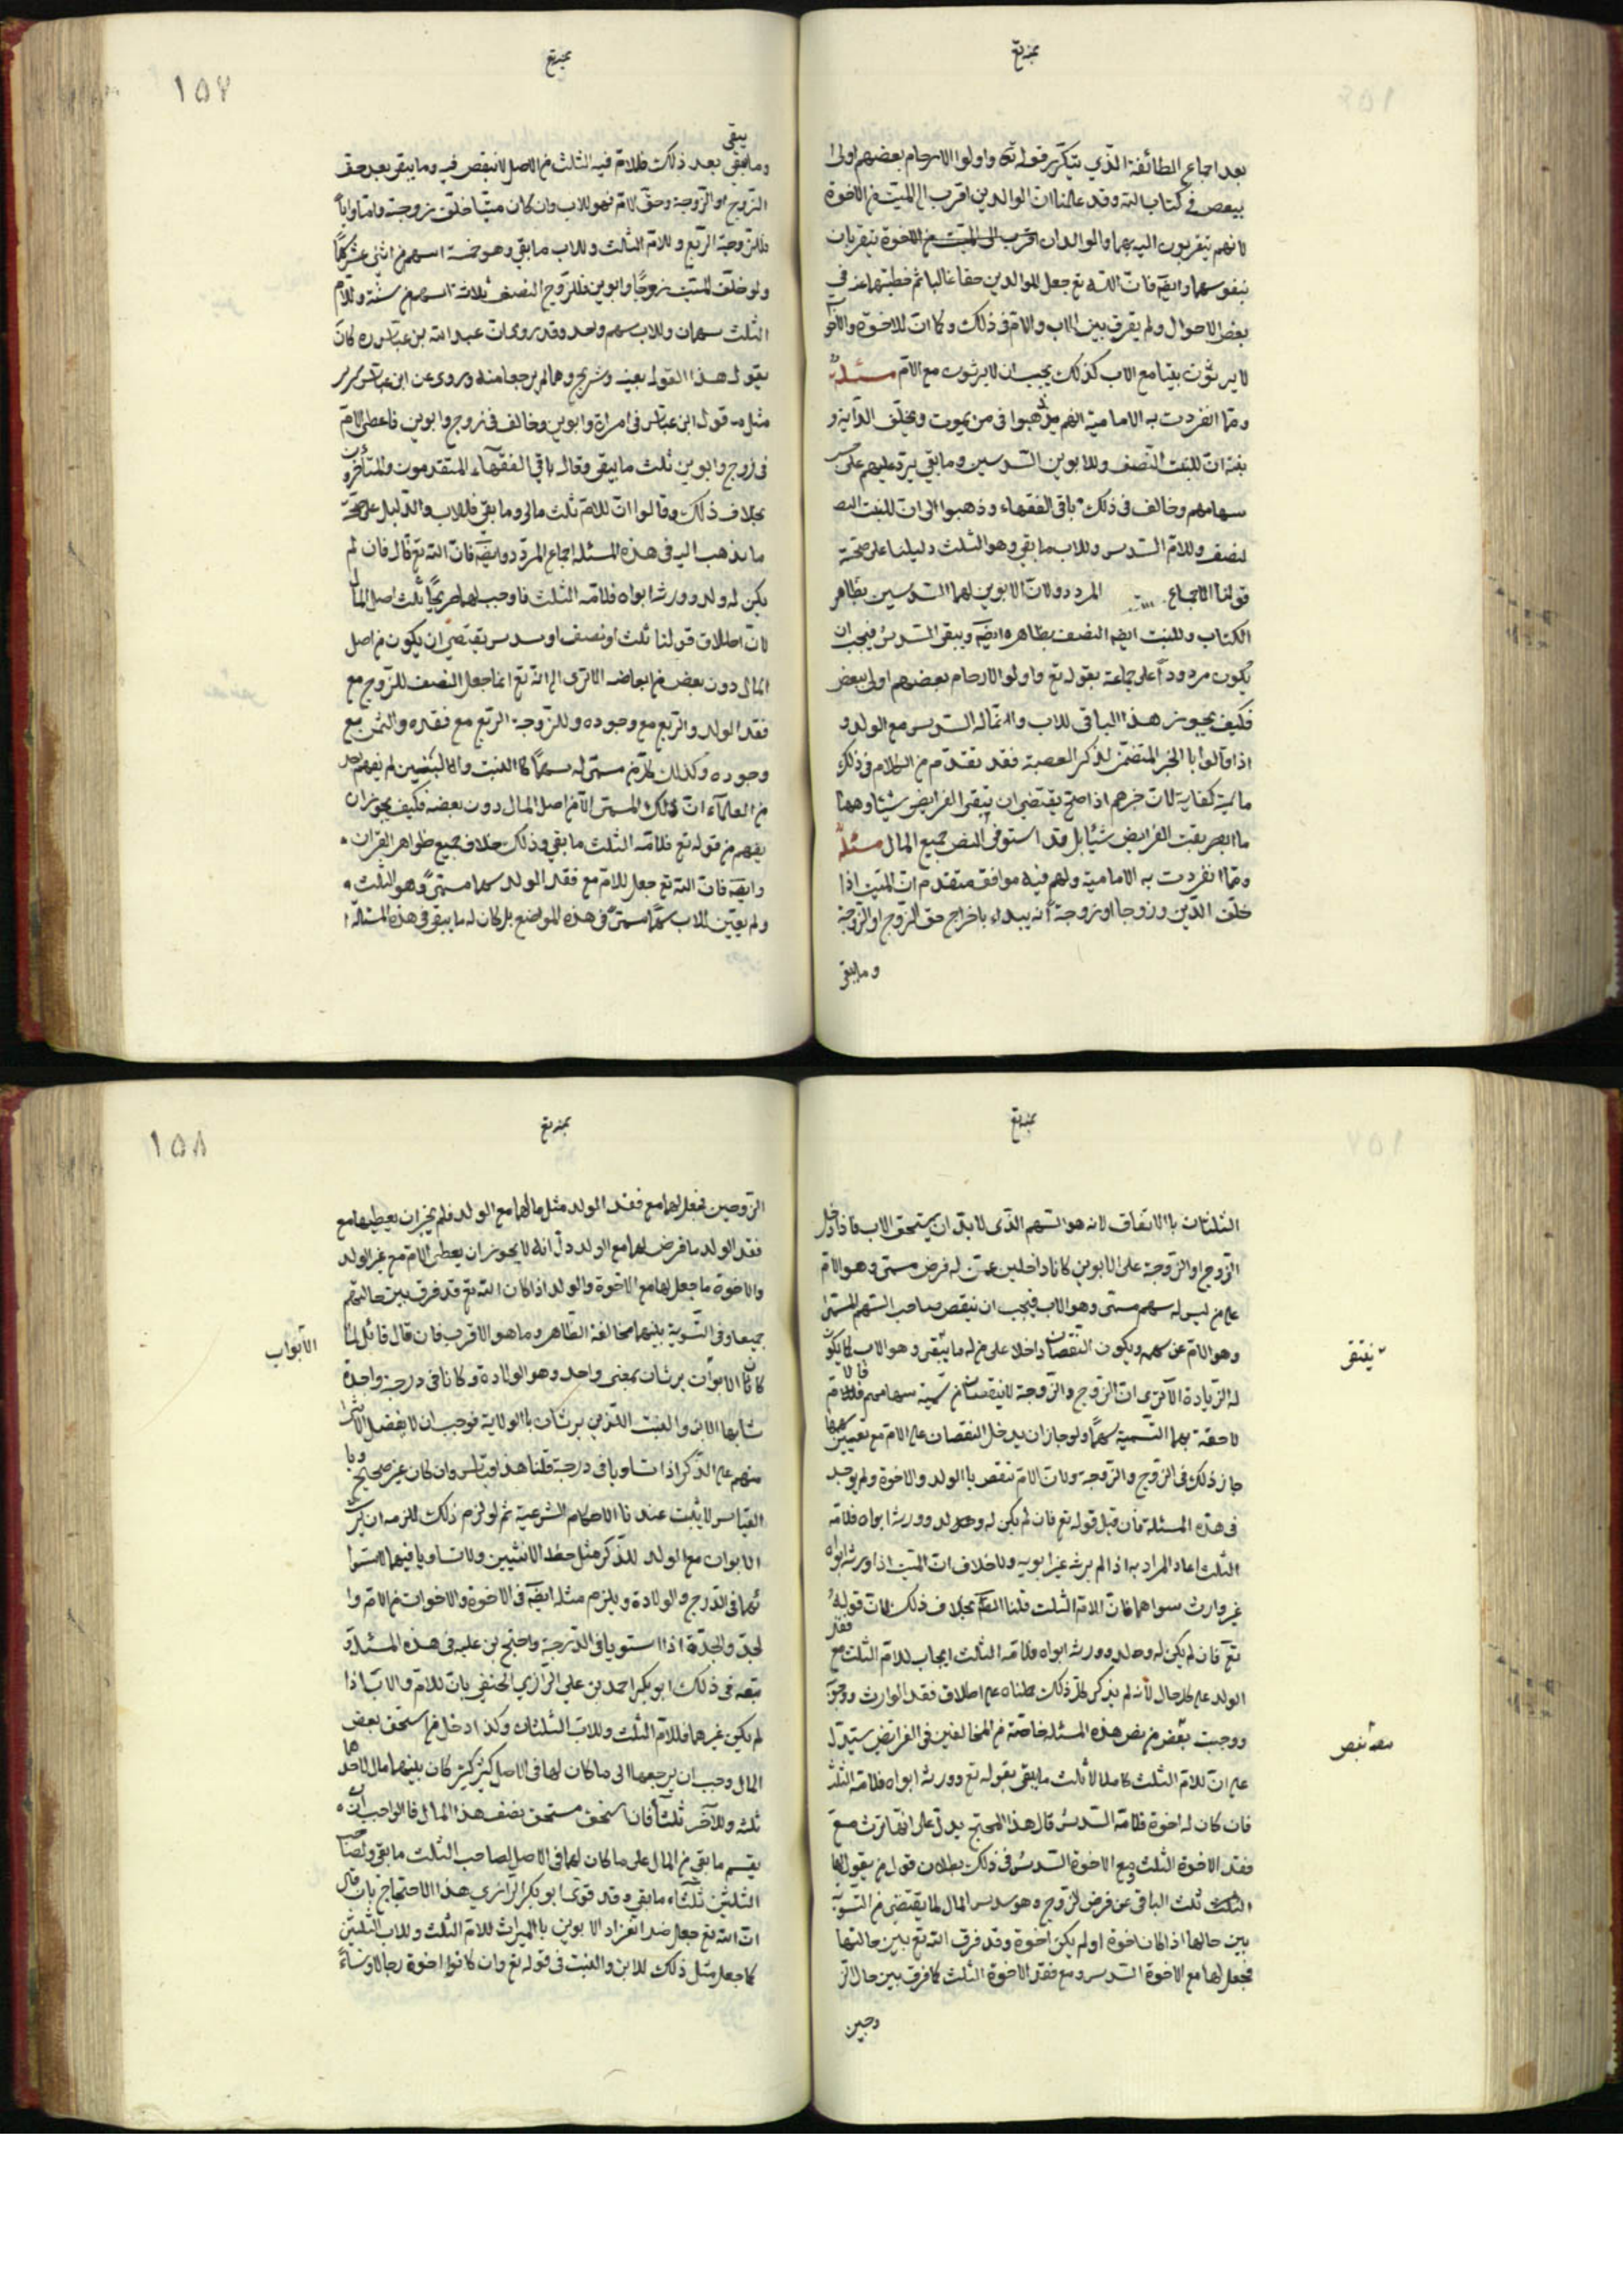 بعد اجماع الطائفة الذي يتكرر قوله تع واولوا الارحام بعضهم اولى
ببعض في كتاب الله وقد علمنا ان الوالدين اقرب الى الميت من الاخوة
لانهم يتقربون اليه بهما والوالدان اقرب الى الميت من الاخوة يتقربان
بنفوسهما وايضا فان الله تع جعل للوالدين حقا غالبا ثم حطهما عنه في
بعض الاحوال ولم يفرق بين الاب والام في ذلك وكما ان الاخوة والاخو
لا يرثون بقيا مع الاب كذلك يجب ان لا يرثوت مع الام مسئلة
ومما انفردت به الامامية انهم يذهبوا فى من يموت ويخلف والديه و
بنته ان للبنت النصف وللابوين السدسين وما بقي يرد عليهم على
سهامهم وخالف فى ذلك باقى الفقهاء وذهبوا الى ان للبنت النصـ
لنصف وللام السدس وللاب ما بقي وهو الثلث دليلنا على صحة
قولنا الاجماع المردد ولان الابوين لهما السدسين بظاهر
الكتاب وللبنت ايضا النصف بظاهره ايضا ويبقى السدس فيجب ان
يكون مردودا على جماعة بقوله تع واولوا الارحام بعضهم اولى ببعض
فكيف يجوز هذا الباقى للاب وانما له السدس مع الولد و
اذا قالوا با الخبر المتضمن لذكر العصبة فقد تقدم من الكلام فى ذلك
ما فيه كفاية لان خبرهم اذا صح يقتضي ان تبقى الفرايض شيئا وههنا
ما ابقت الفرايض شيئا بل قد استوفى النص جميع المال مسئلة
ومما انفردت به الامامية ولهم فيه موافق متقدم ان الميت اذا
خلف الدين وزوجا او زوجة انه يبداء باخراج حق الزوج او الزوجة
وما بقى
١٥٧
يبقى
وما بقى بعد ذلك فللام فيه الثلث من الاصل لا ينقص فيه وما يبقى بعد حق
الزوج او الزوجة وحق الام فهو للاب وان كان ميتا خلف زوجة واما وابا
فللزوجة الربع وللام الثلث وللاب ما بقي وهو خمسة اسهم من اثنى عشر سهما
ولو خلف الميت زوجا وابوين فللزوج النصف ثلاثة اسهم من ستة وللام
الثلث سهمان وللاب سهم واحد وقد روى ان عبد الله بن عباس ره كان
يقول هذا القول بعينه وشريح وهما لم يرجعا منه وروى عن ابن سيرين
مثل قول ابن عباس فى امراة وابوين وخالف فى زوج وابوين فاعطى الام
فى زوج وابوين ثلث ما يبقى وقال باقى الفقهاء المتقدمون والمتأخرون
بخلاف ذلك وقالوا ان للام ثلث مالى وما بقى فللاب والدليل على صحة
ما يذهب اليه فى هذه المسئلة اجماع المردد وايضا فان الله تع قال فان لم
يكن له ولد وورثه ابواه فلامه الثلث فاوجب لها صريحا ثلث اصل المال
لان اطلاق قولنا ثلث او نصف او سدس يقتضي ان يكون من اصل
المال دون بعض من ابعاضه الا ترى الى انه تع انما جعل النصف للزوج مع
فقد الولد والربع مع وجوده وللزوجة الربع مع فقده والثمن مع
وجوده وكذلك كل من سمى له سهما كا البنت والا لبنتين لم يفهم احد
من العلماء ان ذلك المسمى الا من اصل المال دون بعضه فكيف يجوز ان
يفهم من قوله تع فلامه الثلث ما بقي وذلك خلاف جميع ظواهر القران
وايضا فان الله تع جعل للام مع فقد الولد سهما مسمى وهو الثلث
ولم يعين للاب سهما مسمى فى هذه المواضع بل كان له ما يبقى وفى هذه المسئلة
الثلثان با الاتفاق لانه هو السهم الذى لا بد ان يستحق الاب فاذا دخل
الزوج او الزوجة على الابوين كانا داخلين عمن له فرض مسمى وهو الام
على من ليس له سهم مسمى وهو الاب فيجب ان ينقص صاحب السهم المسمى
وهو الام عن سهمه ويكون النقصان داخلا على من له ما يبقى وهو الاب كما يكون
له الزيادة الا ترى ان الزوج والزوجة لا ينقصان من تسمية سهامهم فالام
لاحقة بهما التسمية سهما ولو جاز ان يدخل النقصان على الام مع تعيين سهمها
جاز ذلك فى الزوج والزوجة ولان الام تنقص با الولد والاخوة ولم يوجد
فى هذه المسئلة فان قيل قوله تع فان لم يكن له ولد وورثه ابواه فلامه
الثلث اعاد المراد به اذا لم يرثه غير ابويه ولا خلاف ان الميت اذا ورثه ابواه
غير وارث سواهما فان لامه الثلث قلنا الظاهر بخلاف ذلك لان قوله
تع فان لم يكن له ولد وورثه ابواه فلامه الثلث ايجاب للام الثلث مع فقد
الولد على كل حال لانه لم يذكر كل ذلك حملناه على اطلاق فقد الوارث ووجو
ووجبت بعض من نص هذه المسئلة خاصة من المخالفين فى الفرايض يستدل
على ان للام الثلث كاملا لا ثلث ما يبقى بقوله تع وورثه ابواه فلامه الثلث
فان كان له اخوة فلامه السدس قال هذا المحتج يدل على انها ترث مع
فقد الاخوة الثلث ومع الاخوة السدس فى ذلك بطلان قول من يقول لها
الثلث ثلث الباقى عن فرض الزوج وهو سدس المال لما يقتضي من التسوية
بين حالها اذا كان اخوة او لم يكن اخوة وقد فرق الله تع بين حالتها
فجعل لها مع الاخوة السدس ومع فقد الاخوة الثلث كما فرق بين حال الز
وجين
١٥٨
الزوجين فجعل لهما مع فقد الولد مثل ما لهما مع الولد فلم يجز ان يعطيهما مع
فقد الولد ما فرض لهما مع الولد دل انه لا يجوز ان يعطى الام مع غير الولد
والاخوة ما جعل لها مع الاخوة والولد اذا كان الله تع قد فرق بين حالتهم
جميعا وفى التسوية بينهما مخالفة الظاهر وما هو الاقرب فان قال قائل لما
كانا الابوان يرثان بمعنى واحد وهو الولادة وكانا فى درجة واحدة
شابها الابن والبنت اللذين يرثان با الولادة فوجب ان لا يفضل الانثى
منهم على الذكر اذا تساويا فى درجة قلنا هذا قياس وان كان غير صحيح وبا
القياس لا يثبت عندنا الاحكام الشرعية ثم لو لزم ذلك للزمه ان يرث
الابوان مع الولد للذكر مثل حظ الانثيين ولا تساويا فيهما لاستوا
ئهما فى الدرج والولادة ويلزم مثله ايضا فى الاخوة والاخوات من الام وا
لجد والجدة اذا استويا فى الدرجة واحتج بن علية فى هذه المسئلة و
تبعه فى ذلك ابو بكر احمد بن علي الرازي الحنفي بان للام والاب اذا
لم يكن غيرهما فللام الثلث وللاب الثلثان وكذا دخل من استحق بعض
المال وجب ان يرجعها الى ما كان لهما فى الاصل كشريكين كان بينهما مال لاحدهما
ثلثه وللاخر ثلثا فان استحق مستحق بنصف هذا المال فالواجب ان
يقسم ما بقي من المال على ما كان لهما فى الاصل لصاحب الثلث ما بقي ولصاحب
الثلثين ثلثاء ما بقي وقد قوى ابو بكر الرازي هذا الاحتجاج بان قال
ان الله تع جعل ضد انفراد الابوين با الميراث للام الثلث وللاب الثلثين
كما جعل مثل ذلك للابن والبنت فى قوله تع وان كانوا اخوة رجالا ونساء
الابواب